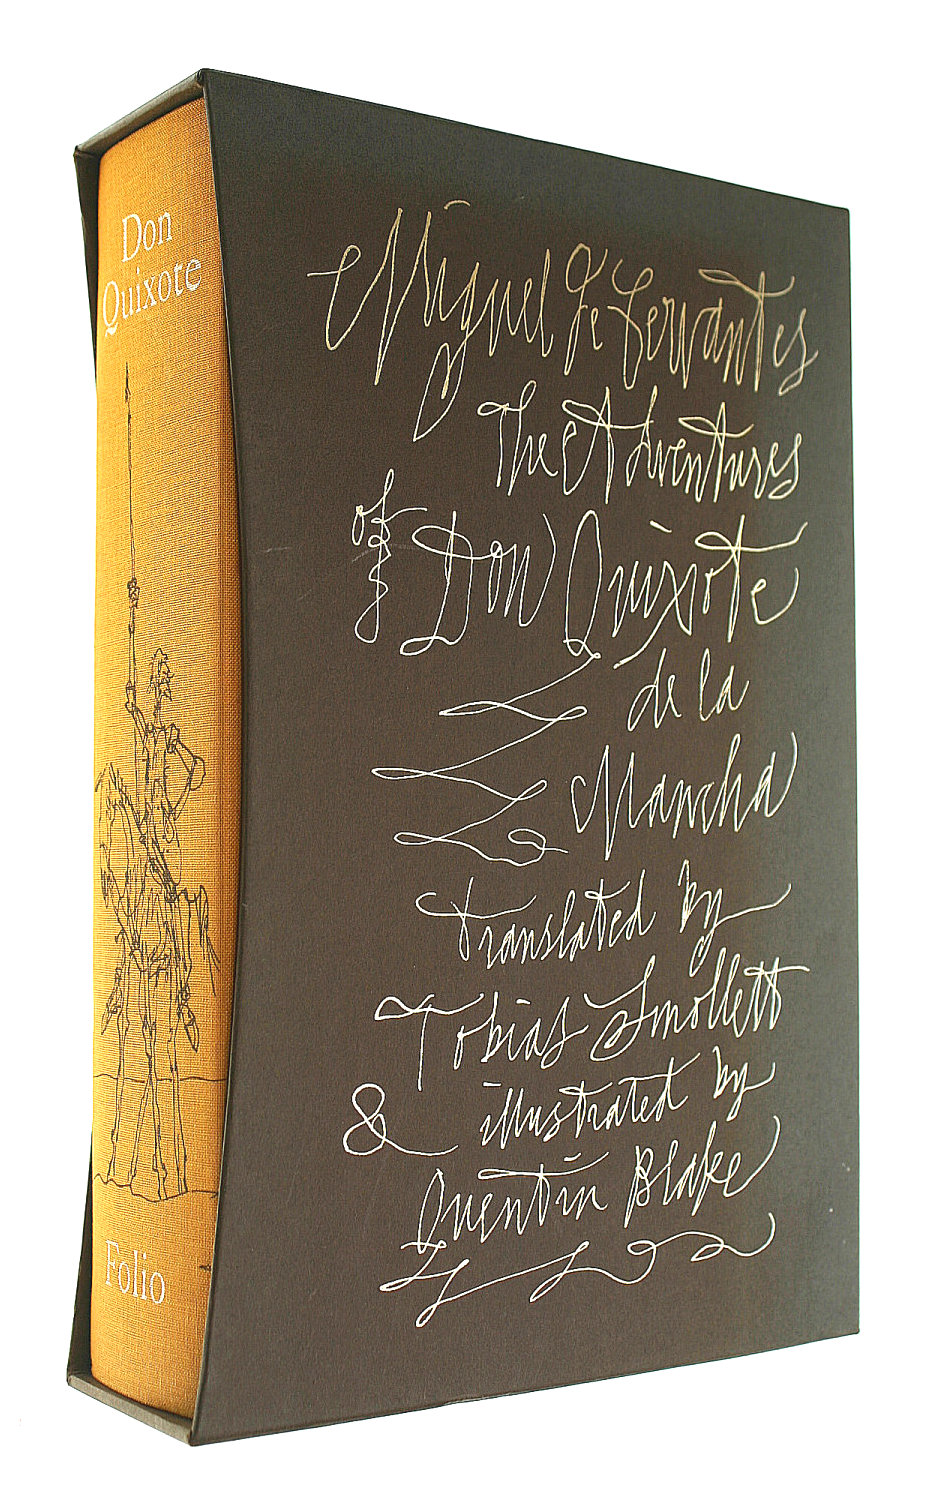 Don
Quixote
Folio
Miguel de Cervantes
The Adventures
of Don Quixote
de la
Mancha
Translated by
Tobias Smollett
& illustrated by
Quentin Blake